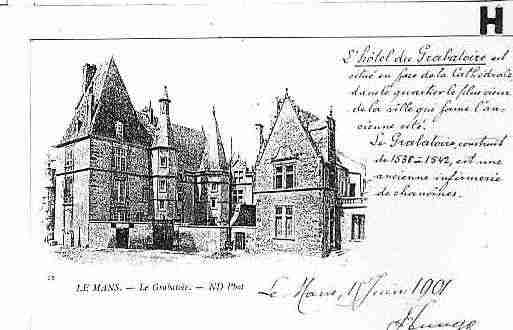 H
L'hôtel du Grabatoire est
situé en face de la Cathédrale
dans le quartier le plus vieux
de la ville que forme l'an-
cienne cité.
Le Grabatoire, construit
de 1538-1542, est une
ancienne infirmerie
de chanoines.
LE MANS. — Le Grabatoire. — ND Phot
Le Mans, Juin 1901